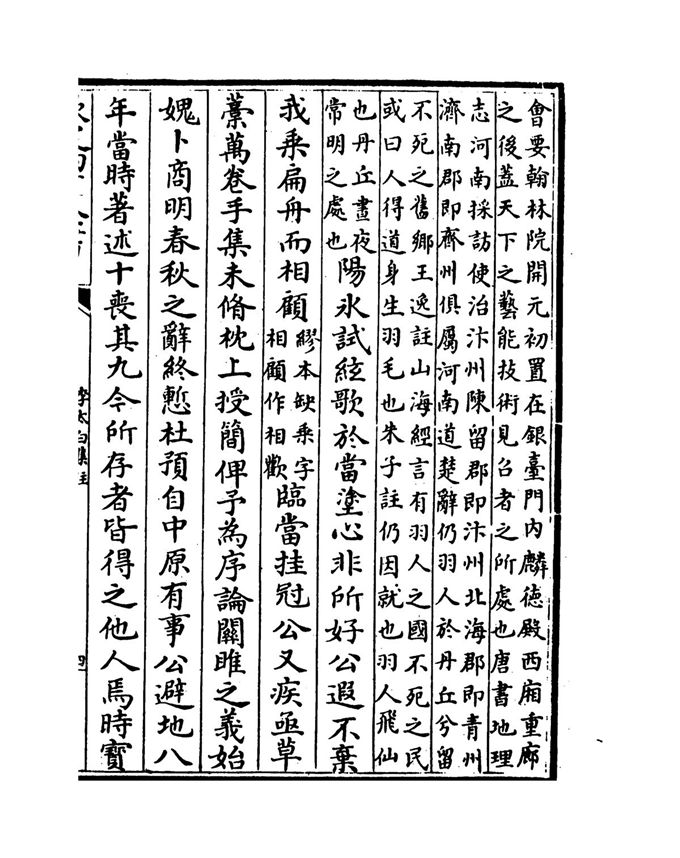 會要翰林院開元初置在銀臺門内麟德殿西廂重廊
之後蓋天下之藝能技術見召者之所處也唐書地理
志河南採訪使治汴州陳留郡即汴州北海郡即青州
濟南郡即齊州俱屬河南道楚辭仍羽人於丹丘兮留
不死之舊鄉王逸註山海經言有羽人之國不死之民
或曰人得道身生羽毛也朱子註仍因就也羽人飛仙
也丹丘晝夜
常明之處也
陽氷試絃歌於當塗心非所好公遐不棄
我乗扁舟而相顧
繆本缺乗字
相顧作相歡
臨當挂冠公又疾亟草
藁萬卷手集未脩枕上授簡俾予為序論關雎之義始
媿卜商明春秋之辭終慙杜預自中原有事公避地八
年當時著述十喪其九今所存者皆得之他人焉時寳
李太白集注
四